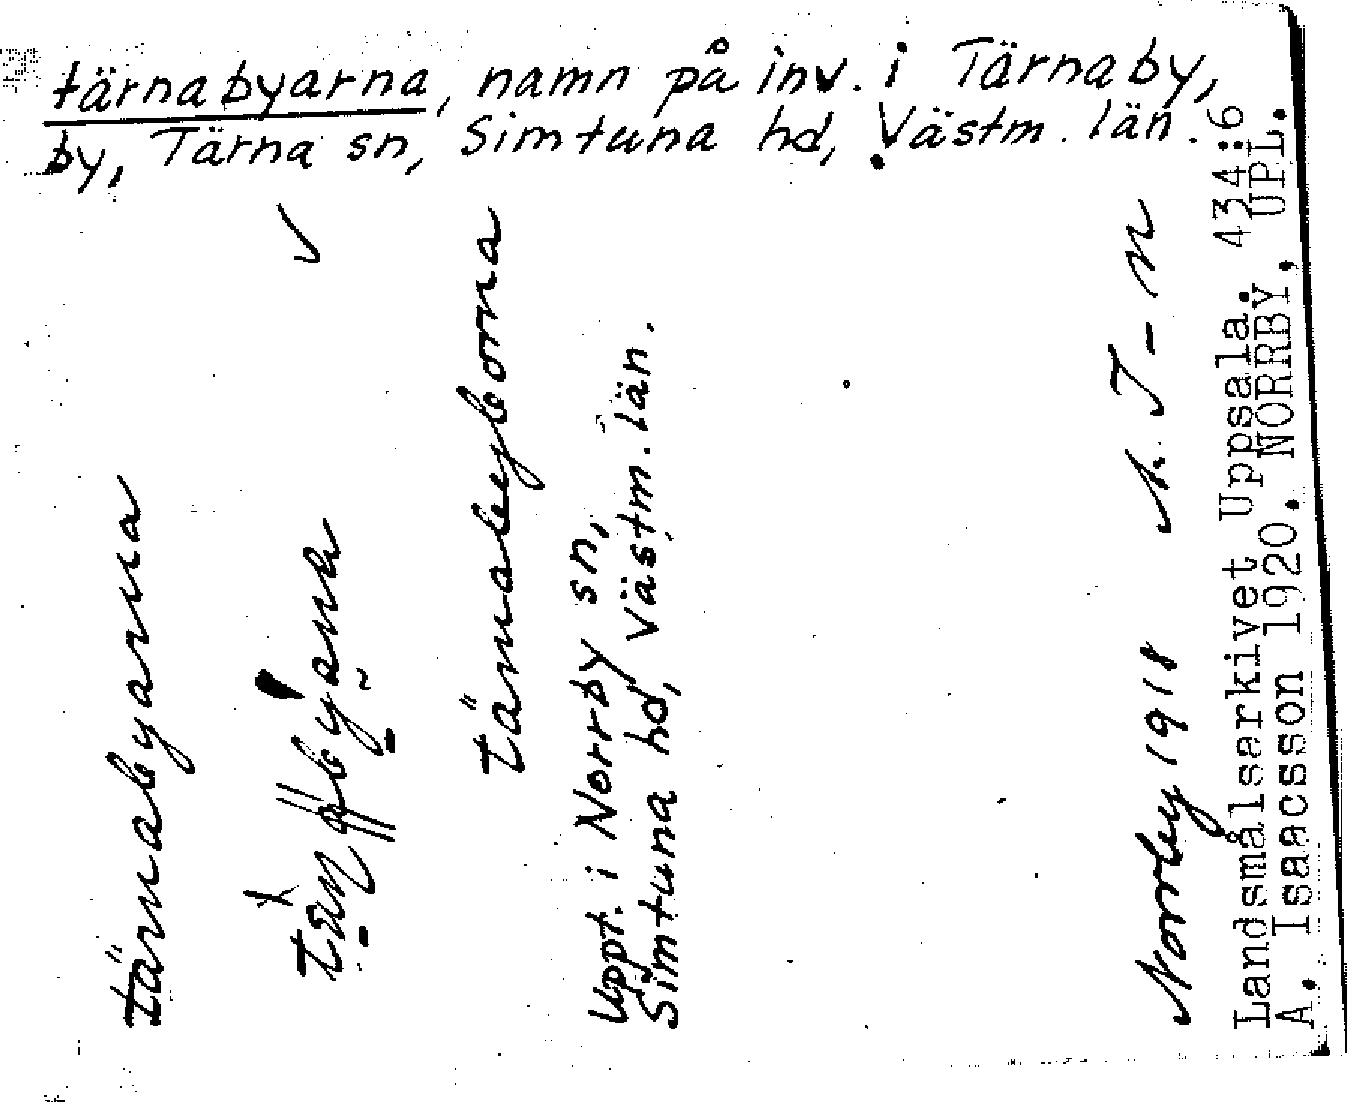 tärnabyarna, namn på inv. i Tärnaby,
by, Tärna sn, Simtuna hd, Västm. län.
tärnabyarna
tärnabyborna
Uppt. i Norrby sn,
Simtuna hd, Västm. län.
Norrby 1918 A. I-n
Landsmålsarkivet Uppsala. 434:6
A. Isaacsson 1920. NORRBY, UPL.